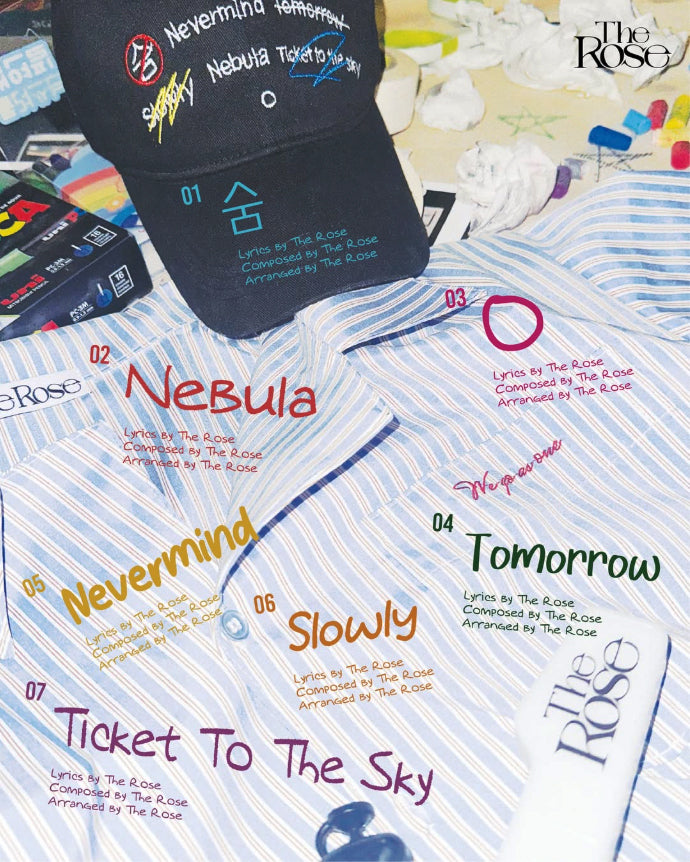 The
Rose
Nevermind tomorrow
숨
Slowly Nebula Ticket to the sky
O
01 숨
Lyrics By The Rose
Composed By The Rose
Arranged By The Rose
CA
uni
PC-3M
16
PC-5M
16
03 O
Lyrics By The Rose
Composed By The Rose
Arranged By The Rose
eRose
02 Nebula
Lyrics By The Rose
Composed By The Rose
Arranged By The Rose
We go as one
04 Tomorrow
Lyrics By The Rose
Composed By The Rose
Arranged By The Rose
05 Nevermind
Lyrics By The Rose
Composed By The Rose
Arranged By The Rose
06 Slowly
Lyrics By The Rose
Composed By The Rose
Arranged By The Rose
The
Rose
07 Ticket To The Sky
Lyrics By The Rose
Composed By The Rose
Arranged By The Rose